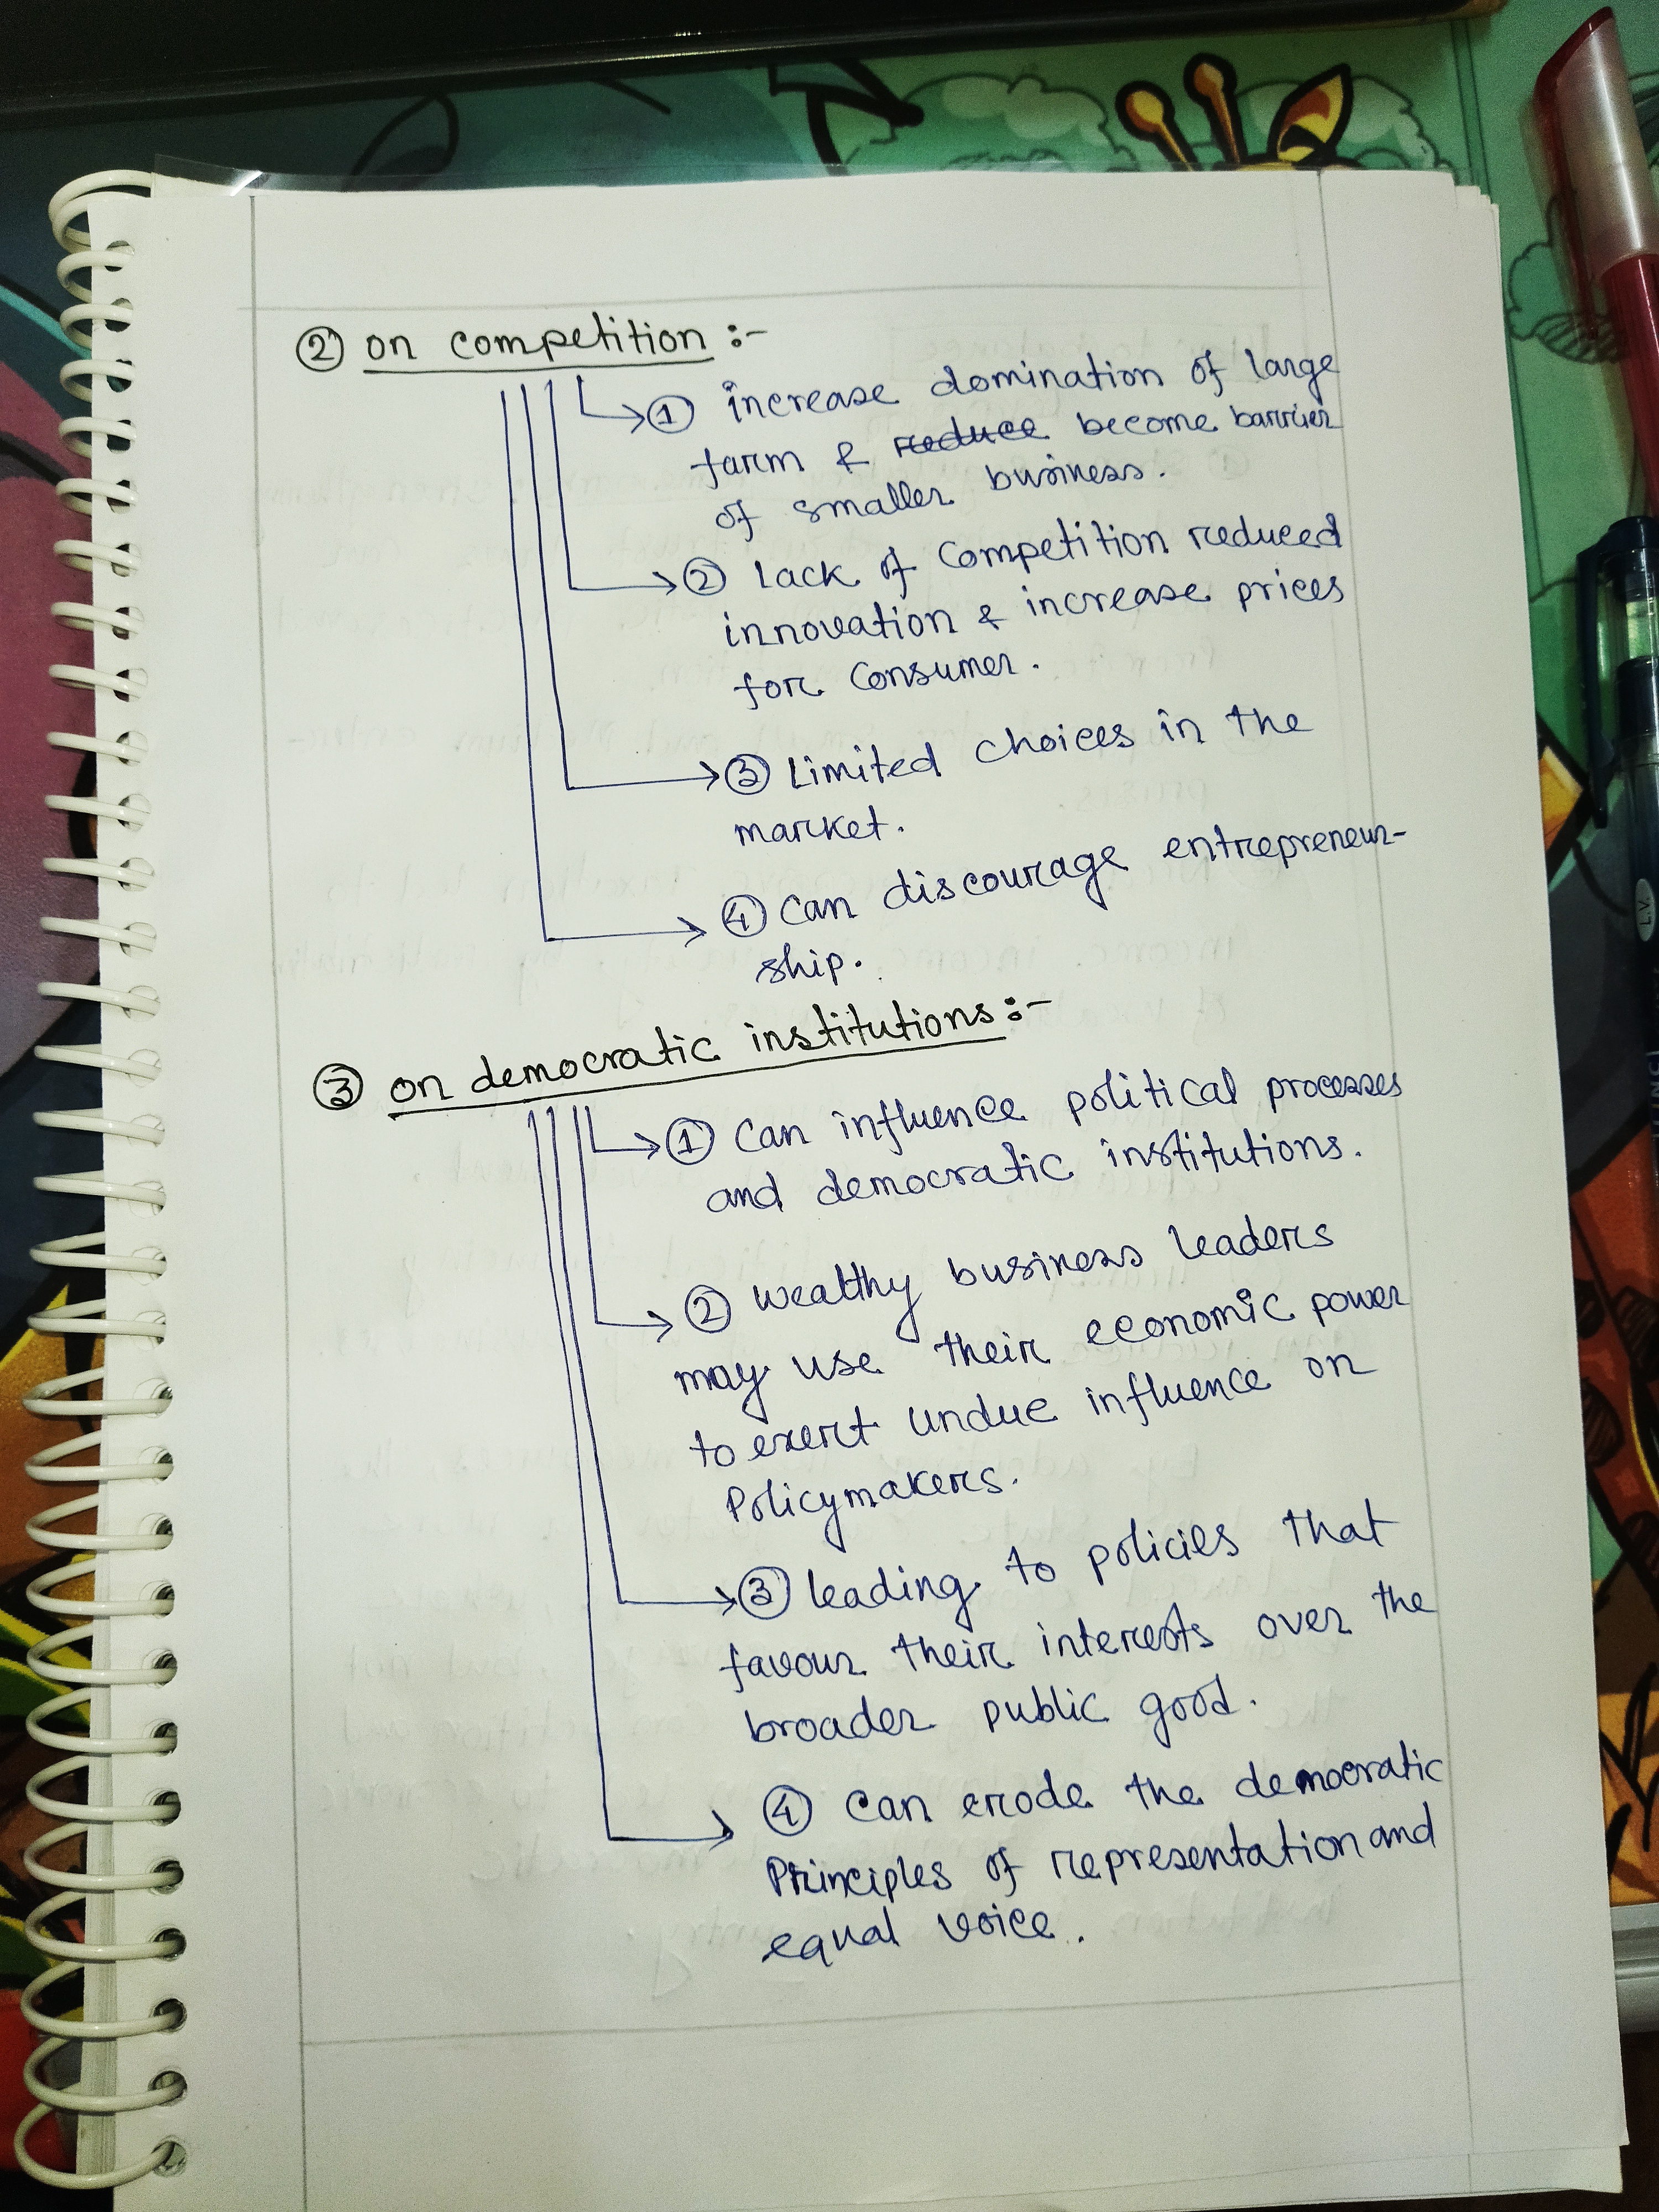 ② on competition :-
① increase domination of large
farm & reduce become barrier
of smaller business.
② Lack of Competition reduced
innovation & increase prices
for Consumer.
③ Limited choices in the
market.
④ Can discourage entrepreneur-
ship.
③ on democratic institutions :-
① Can influence political processes
and democratic institutions.
② wealthy business leaders
may use their economic power
to exert undue influence on
Policymakers.
③ leading to policies that
favour their interests over the
broader public good.
④ Can erode the democratic
Principles of representation and
equal voice.
L.V.